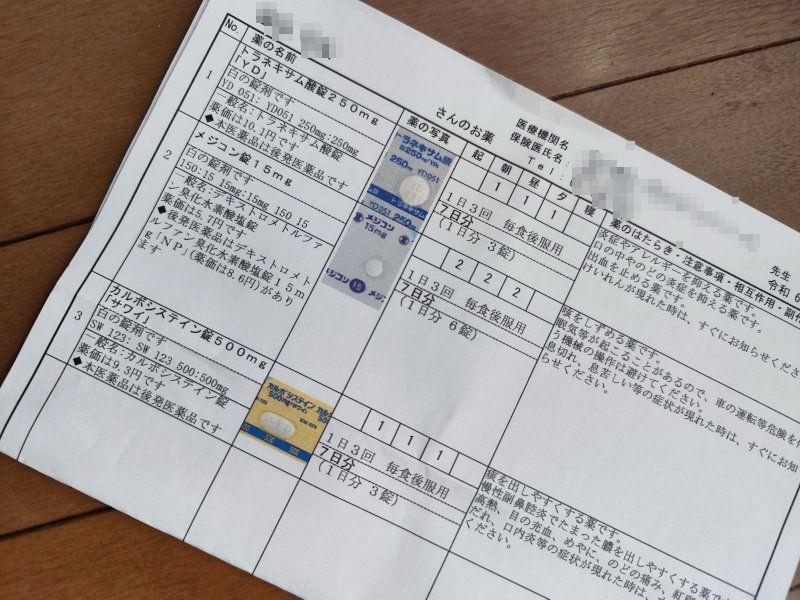 さんのお薬
医療機関名
保険医氏名:
Tel:
先生
令和6
No.
薬の名前
薬の写真
起 朝 昼 夕 寝
薬のはたらき・注意事項・相互作用・副作
1
トラネキサム酸錠250mg
「YD」
白の錠剤です
YD 051: YD051 250mg:250mg
一般名:トラネキサム酸錠
薬価は10.1円です
◆本医薬品は後発医薬品です
トラネキサム酸
錠250mg「YD」
250mg YD051
YD051 250mg
1 1 1
1日3回 毎食後服用
7日分
(1日分 3錠)
炎症やアレルギーを抑える薬です。
口の中やのどの炎症を抑える薬です。
出血を止める薬です。
けいれんが現れた時は、すぐにお知らせくださ
2
メジコン錠15mg
白の錠剤です
150:15 15mg:15mg 150 15
一般名:デキストロメトルファ
ン臭化水素酸塩錠
薬価は5.7円です
◆後発医薬品はデキストロメト
ルファン臭化水素酸塩錠15m
g「NP」(薬価は8.6円)があり
ます
メジコン
15mg
メジコン 15 メジ
2 2 2
1日3回 毎食後服用
7日分
(1日分 6錠)
咳をしずめる薬です。
眠気等が起こることがあるので、車の運転等危険を
う機械の操作は避けてください。
息切れ、息苦しい等の症状が現れた時は、すぐにお知
らせください。
3
カルボシステイン錠500mg
「サワイ」
白の錠剤です
SW 123: SW 123 500:500mg
一般名:カルボシステイン錠
薬価は9.3円です
◆本医薬品は後発医薬品です
カルボシステイン
500mg「サワイ」
1 1 1
1日3回 毎食後服用
7日分
(1日分 3錠)
痰を出しやすくする薬です。
慢性副鼻腔炎でたまった膿を出しやすくする薬で
高熱、目の充血、めやに、のどの痛み、紅
だれ、口内炎等の症状が現れた時は、
ください。